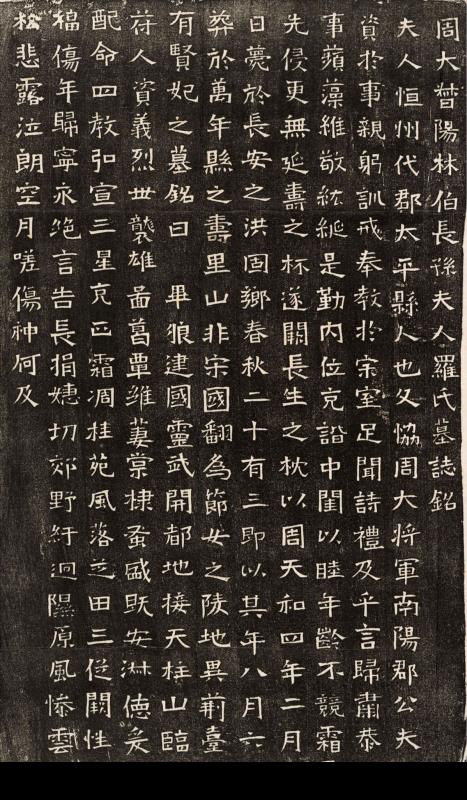 周大晉陽林伯長孫夫人羅氏墓誌銘
夫人恒州代郡太平縣人也父協周大將軍南陽郡公夫人
資於事親躬訓戒奉教於宗室足聞詩禮及乎言歸肅恭
事蘋藻維敬紘綖是勤內位克諧中閨以睦年齡不競霜
先侵更無延壽之杯遂闕長生之枕以周天和四年二月
日薨於長安之洪固鄉春秋二十有三即以其年八月六
葬於萬年縣之壽里山非宋國翻為節女之陵地異荊臺
有賢妃之墓銘曰 畢狼建國靈武開都地接天柱山臨
苻人資義烈世襲雄啚葛覃維萋棠棣蚤盛既安淋德爰
配命四教弘宣三星克正霜凋桂苑風落芝田三從闕性
福傷年歸寧永絕言告長捐悽切郊野紆迴隰原風慘雲
松悲露泣朗空月嗟傷神何及